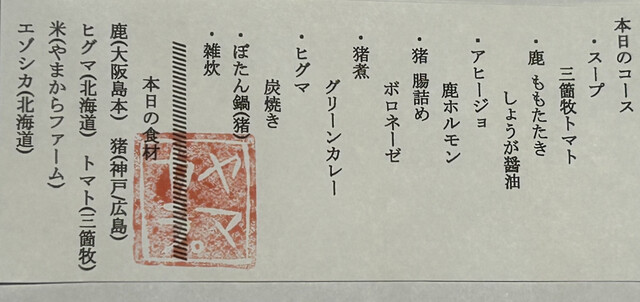 本日のコース
・スープ
三箇牧トマト
・鹿 ももたたき
しょうが醤油
・アヒージョ
鹿ホルモン
・猪 腸詰め
ボロネーゼ
・猪煮
グリーンカレー
・ヒグマ
炭焼き
・ぼたん鍋(猪)
・雑炊
本日の食材
鹿(大阪島本) 猪(神戸/広島)
ヒグマ(北海道) トマト(三箇牧)
米(やまからファーム)
エゾシカ(北海道)